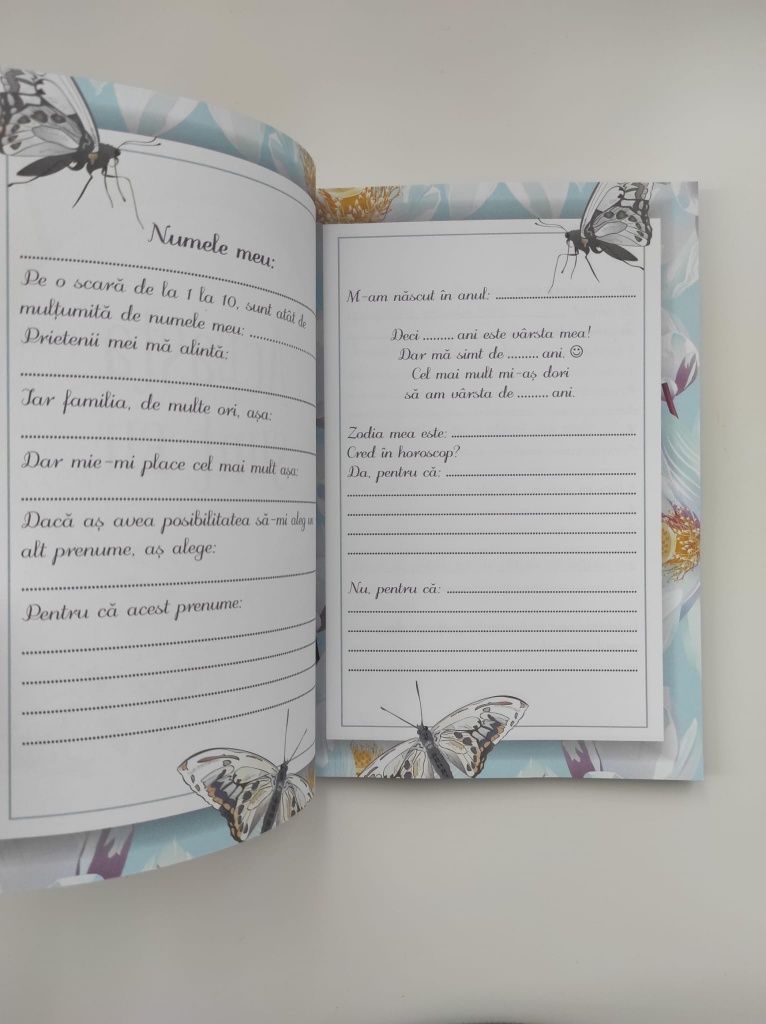 Numele meu:
Pe o scară de la 1 la 10, sunt atât de
mulțumită de numele meu: ..............
Prietenii mei mă alintă:
Iar familia, de multe ori, așa:
Dar mie-mi place cel mai mult așa:
Dacă aș avea posibilitatea să-mi aleg un
alt prenume, aș alege:
Pentru că acest prenume:
M-am născut în anul: ..............................
Deci ......... ani este vârsta mea!
Dar mă simt de ......... ani. ☺
Cel mai mult mi-aș dori
să am vârsta de ......... ani.
Zodia mea este: ..............................
Cred în horoscop?
Da, pentru că: ..............................
Nu, pentru că: ..............................